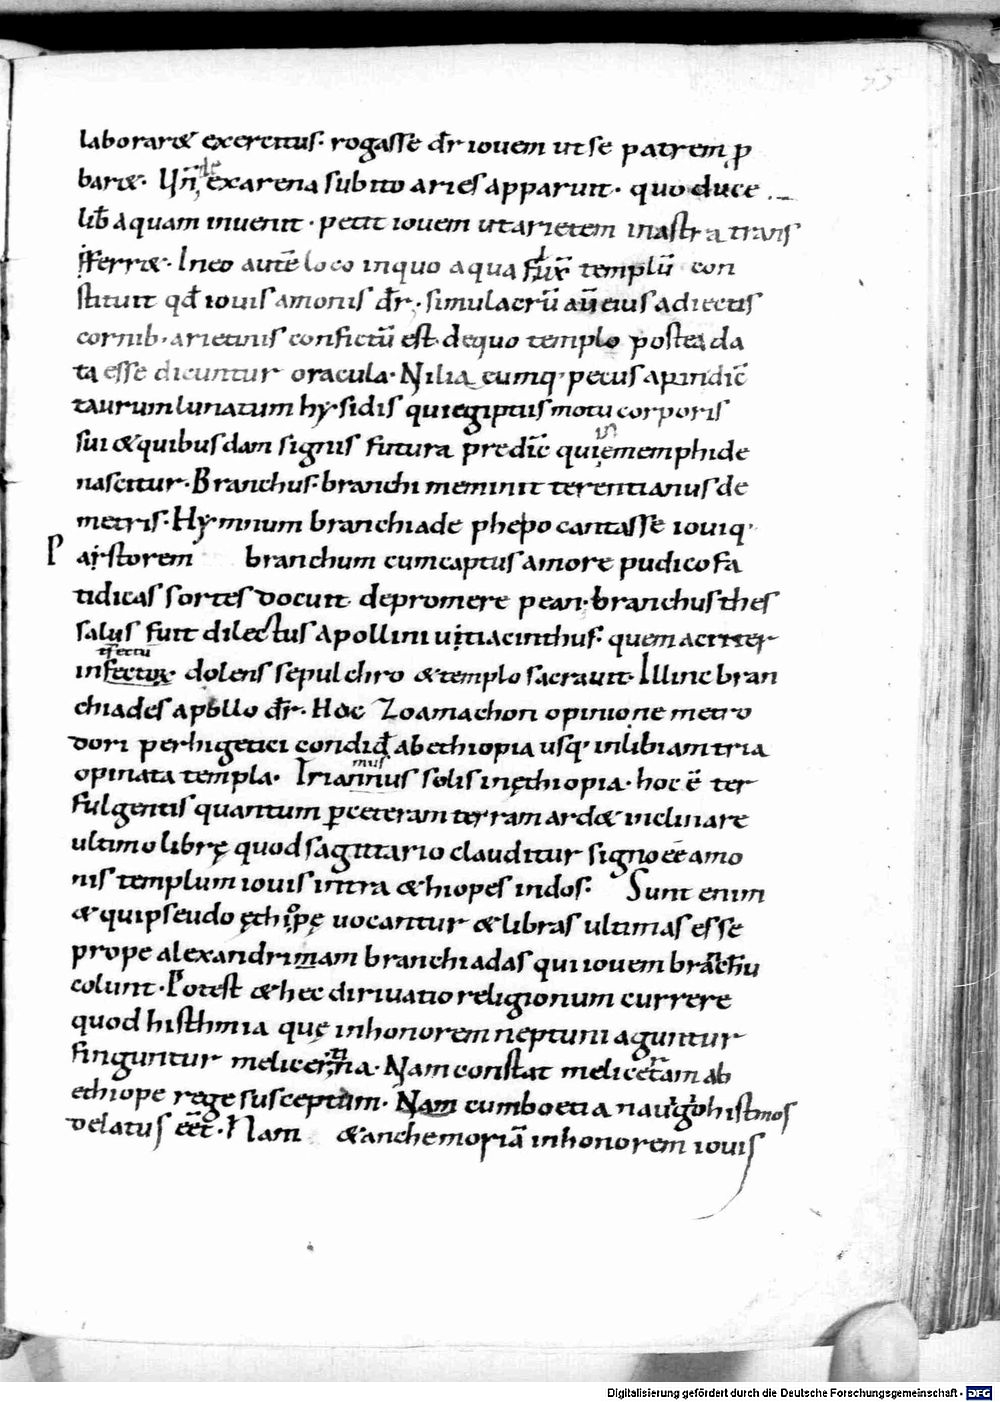 55
laborar& exercitus· rogasse dr̄ iouem ut se patrem ꝓ
bar&· Un̄ de ex arena subito aries apparuit· quo duce
lib̄ aquam inuenit· petit iouem ut arietem in astra trans
ferr&· In eo autē loco in quo aqua fluxit templū con
stituit qd̄ iouis amonis dr̄· simulacrū aū eius adiectis
cornib· arietinis confictū est· de quo templo postea da
ta esse dicuntur oracula· Nilia cumq· pecus apin dic̄
taurum lunatum hysidis qui egiptiis motu corporis
sui & quibusdam signis futura predic̄ qui in memphide
nascitur· Branchus· branchi meminit terentianus de
metris· Hymnum branchiade phepo cantasse iouiq·
P astorem branchum cum captus amore pudico fa
tidicas sortes docuit depromere pean· branchus thes
salus fuit dilectus apollini ut iacinthus· quem acriter
interfectū dolens sepulchro & templo sacrauit· Illinc bran
chiades apollo dr̄· Hoc Zoamachon opinione metro
dori perhigetici condid̄ ab ethiopia usq· in libiam tria
opinata templa· Iriamnus solis in ęthiopia· hoc ē ter
fulgentis quantum p̱ ceteram terram ard& inclinare
ultimo librę quod sagittario clauditur signo eē amo
nis templum iouis intra &hiopes indos· Sunt enim
& qui pseudo ęthiopę uocantur & libras ultimas esse
prope alexandrinam branchiadas qui iouem branchiū
colunt· Potest & hec diriuatio religionum currere
quod histhmia quę in honorem neptuni aguntur
finguntur melicertina· Nam constat melicertam ab
ethiope rege susceptum· Nam cum boetia nauigo histmos
delatus eēt· Nam & anchemoriā in honorem iouis
Digitalisierung gefördert durch die Deutsche Forschungsgemeinschaft - DFG